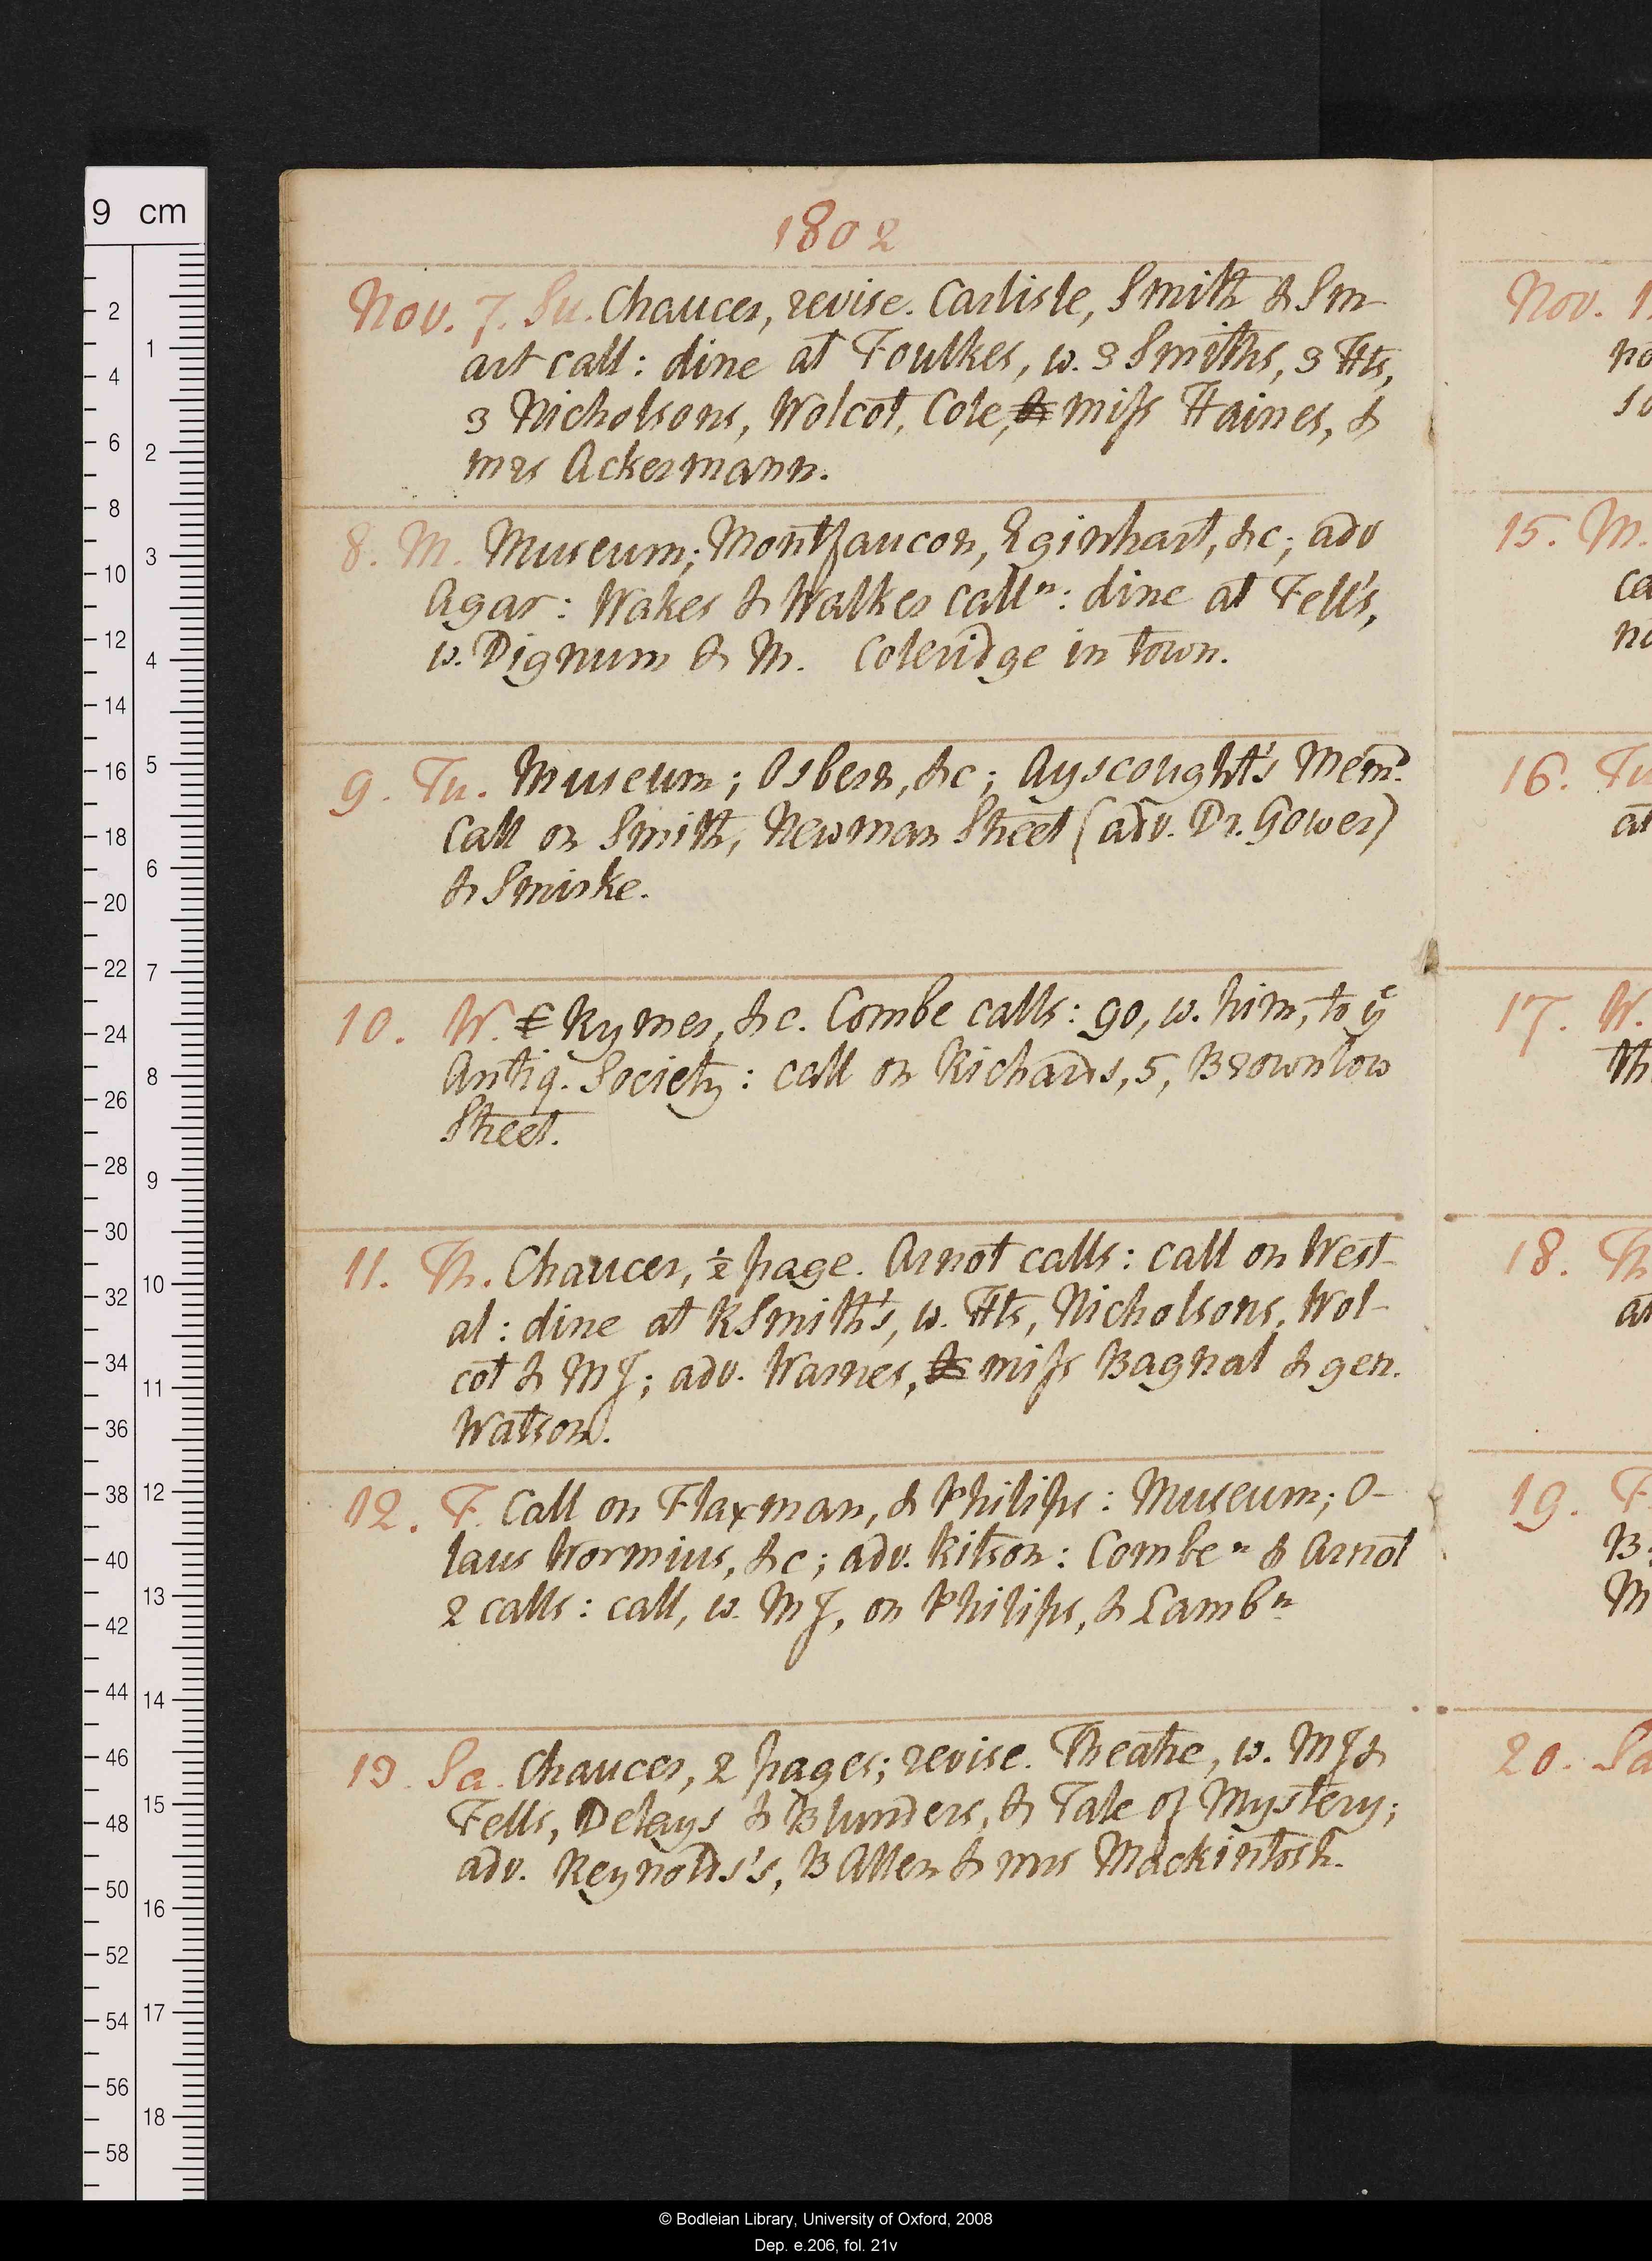 9 cm
1802
Nov. 7. Su. Chaucer, revise. Carlisle, Smith & Sm-
art call: dine at Foulkes, w. 3 Smiths, 3 Hts,
3 Nicholsons, Wolcot, Cole, & miss Haines, &
mrs Ackermann.
8. M. Museum; Montfaucon, Eginhart, &c; adv
Agar: Wakes & Walker call n: dine at Fell's,
w. Dignum & M. Coleridge in town.
9. Tu. Museum; Osbern, &c; Ayscought's Memd.
Call on Smith, Newman Street (adv. Dr. Gower)
& Smirke.
10. W. Rymer, &c. Combe calls: go, w. him, to ye
Antiq. Society: call on Richards, 5, Brownlow
Street.
11. Th. Chaucer, ½ page. Arnot calls: call on West-
al: dine at RSmith's, w. Hts, Nicholsons, Wol-
cot & MJ; adv. Warnes, & miss Bagnal & gen.
Watson.
12. F. Call on Flaxman, & Philips: Museum; O-
laus Wormius, &c; adv. Ritson: Combe n & Arnot
2 calls: call, w. MJ, on Philips, & Lamb n
13. Sa. Chaucer, 2 pages; revise. Theatre, w. MJ &
Fells, Delays & Blunders, & Tale of Mystery;
adv. Reynolds's, B Allen & mrs Mackintosh.
Nov. 1
15. M.
16. Tu
17. W.
18. Th
19. F
20. Sa
© Bodleian Library, University of Oxford, 2008
Dep. e.206, fol. 21v